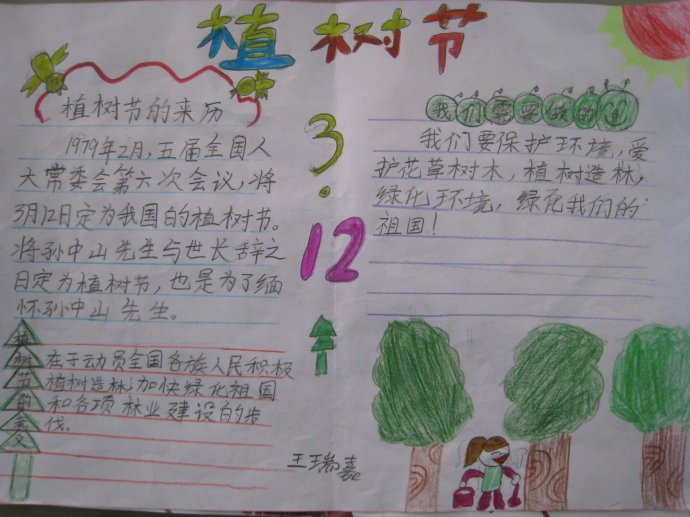 植树节
植树节的来历
1979年2月,五届全国人
大常委会第六次会议,将
3月12日定为我国的植树节。
将孙中山先生与世长辞之
日定为植树节,也是为了缅
怀孙中山先生。
植树节的意义
在于动员全国各族人民积极
植树造林,加快绿化祖国
和各项林业建设的步
伐。
3.
12
我们需要做的
我们要保护环境,爱
护花草树木,植树造林,
绿化环境,绿化我们的
祖国!
王瑞嘉